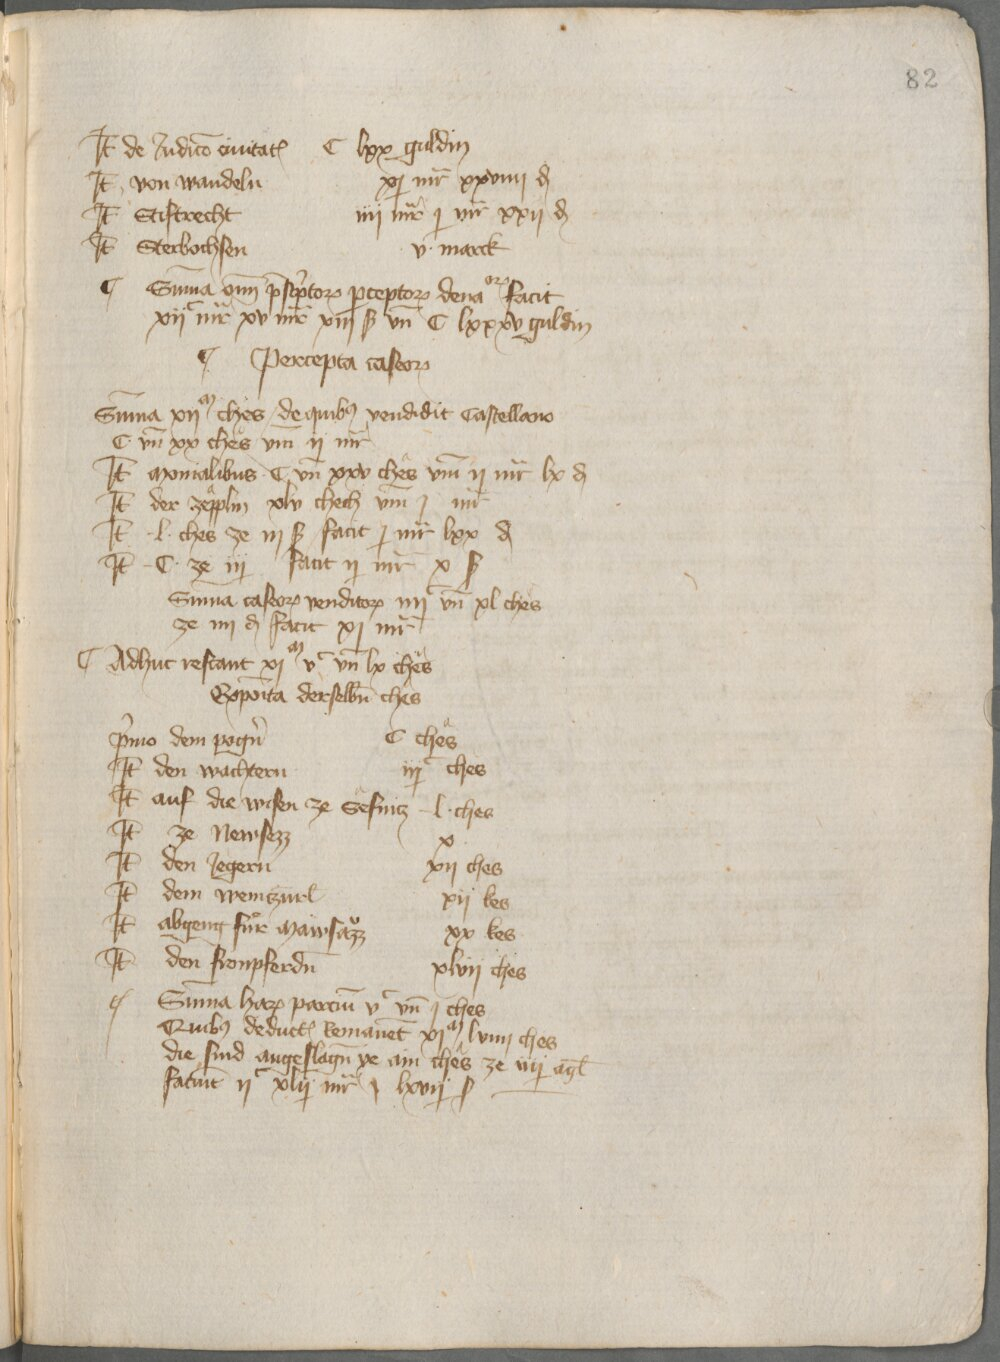 82
It de Judico civitat C lxx guldin
It von wandeln xj mr xxviiii d
It Stiftrecht iiii mr j vir xxii d
It Sterbochsen v marck
Suma om pscptor pceptor denaor facit
xiic mr xv mr xiii s vn C lxxxv guldin
Percepta caseor
Suma xiim ches de quibus vendidit Castellano
C vn xx ches vm ii mr
It monialibus C vn xxv ches vm ii mr lx d
It der zepplin xlv chech vm j mr
It l ches ze iii s facit j mr lxx d
It C ze iij facit ii mr x s
Suma caseor venditor iiij vn xl ches
ze iiii d facit xj mr
Adhuc restant xjm vc vn lx ches
Exposita derselbn ches
pmo dem pogn C ches
It den wachtern iijc ches
It auf die wisen ze Sefnitz l ches
It ze Newsezz x
It den Jegern xii ches
It dem weintzurl xii kes
It abgeng für Mawsazz xx kes
It den fronpferdn xlvii ches
Suma har parciu vc vn j ches
Quibus deduct remanet xjm lviiii ches
die sind angeslagn ye ain ches ze iiij agl
faciunt iic xlij mr j lxvij s